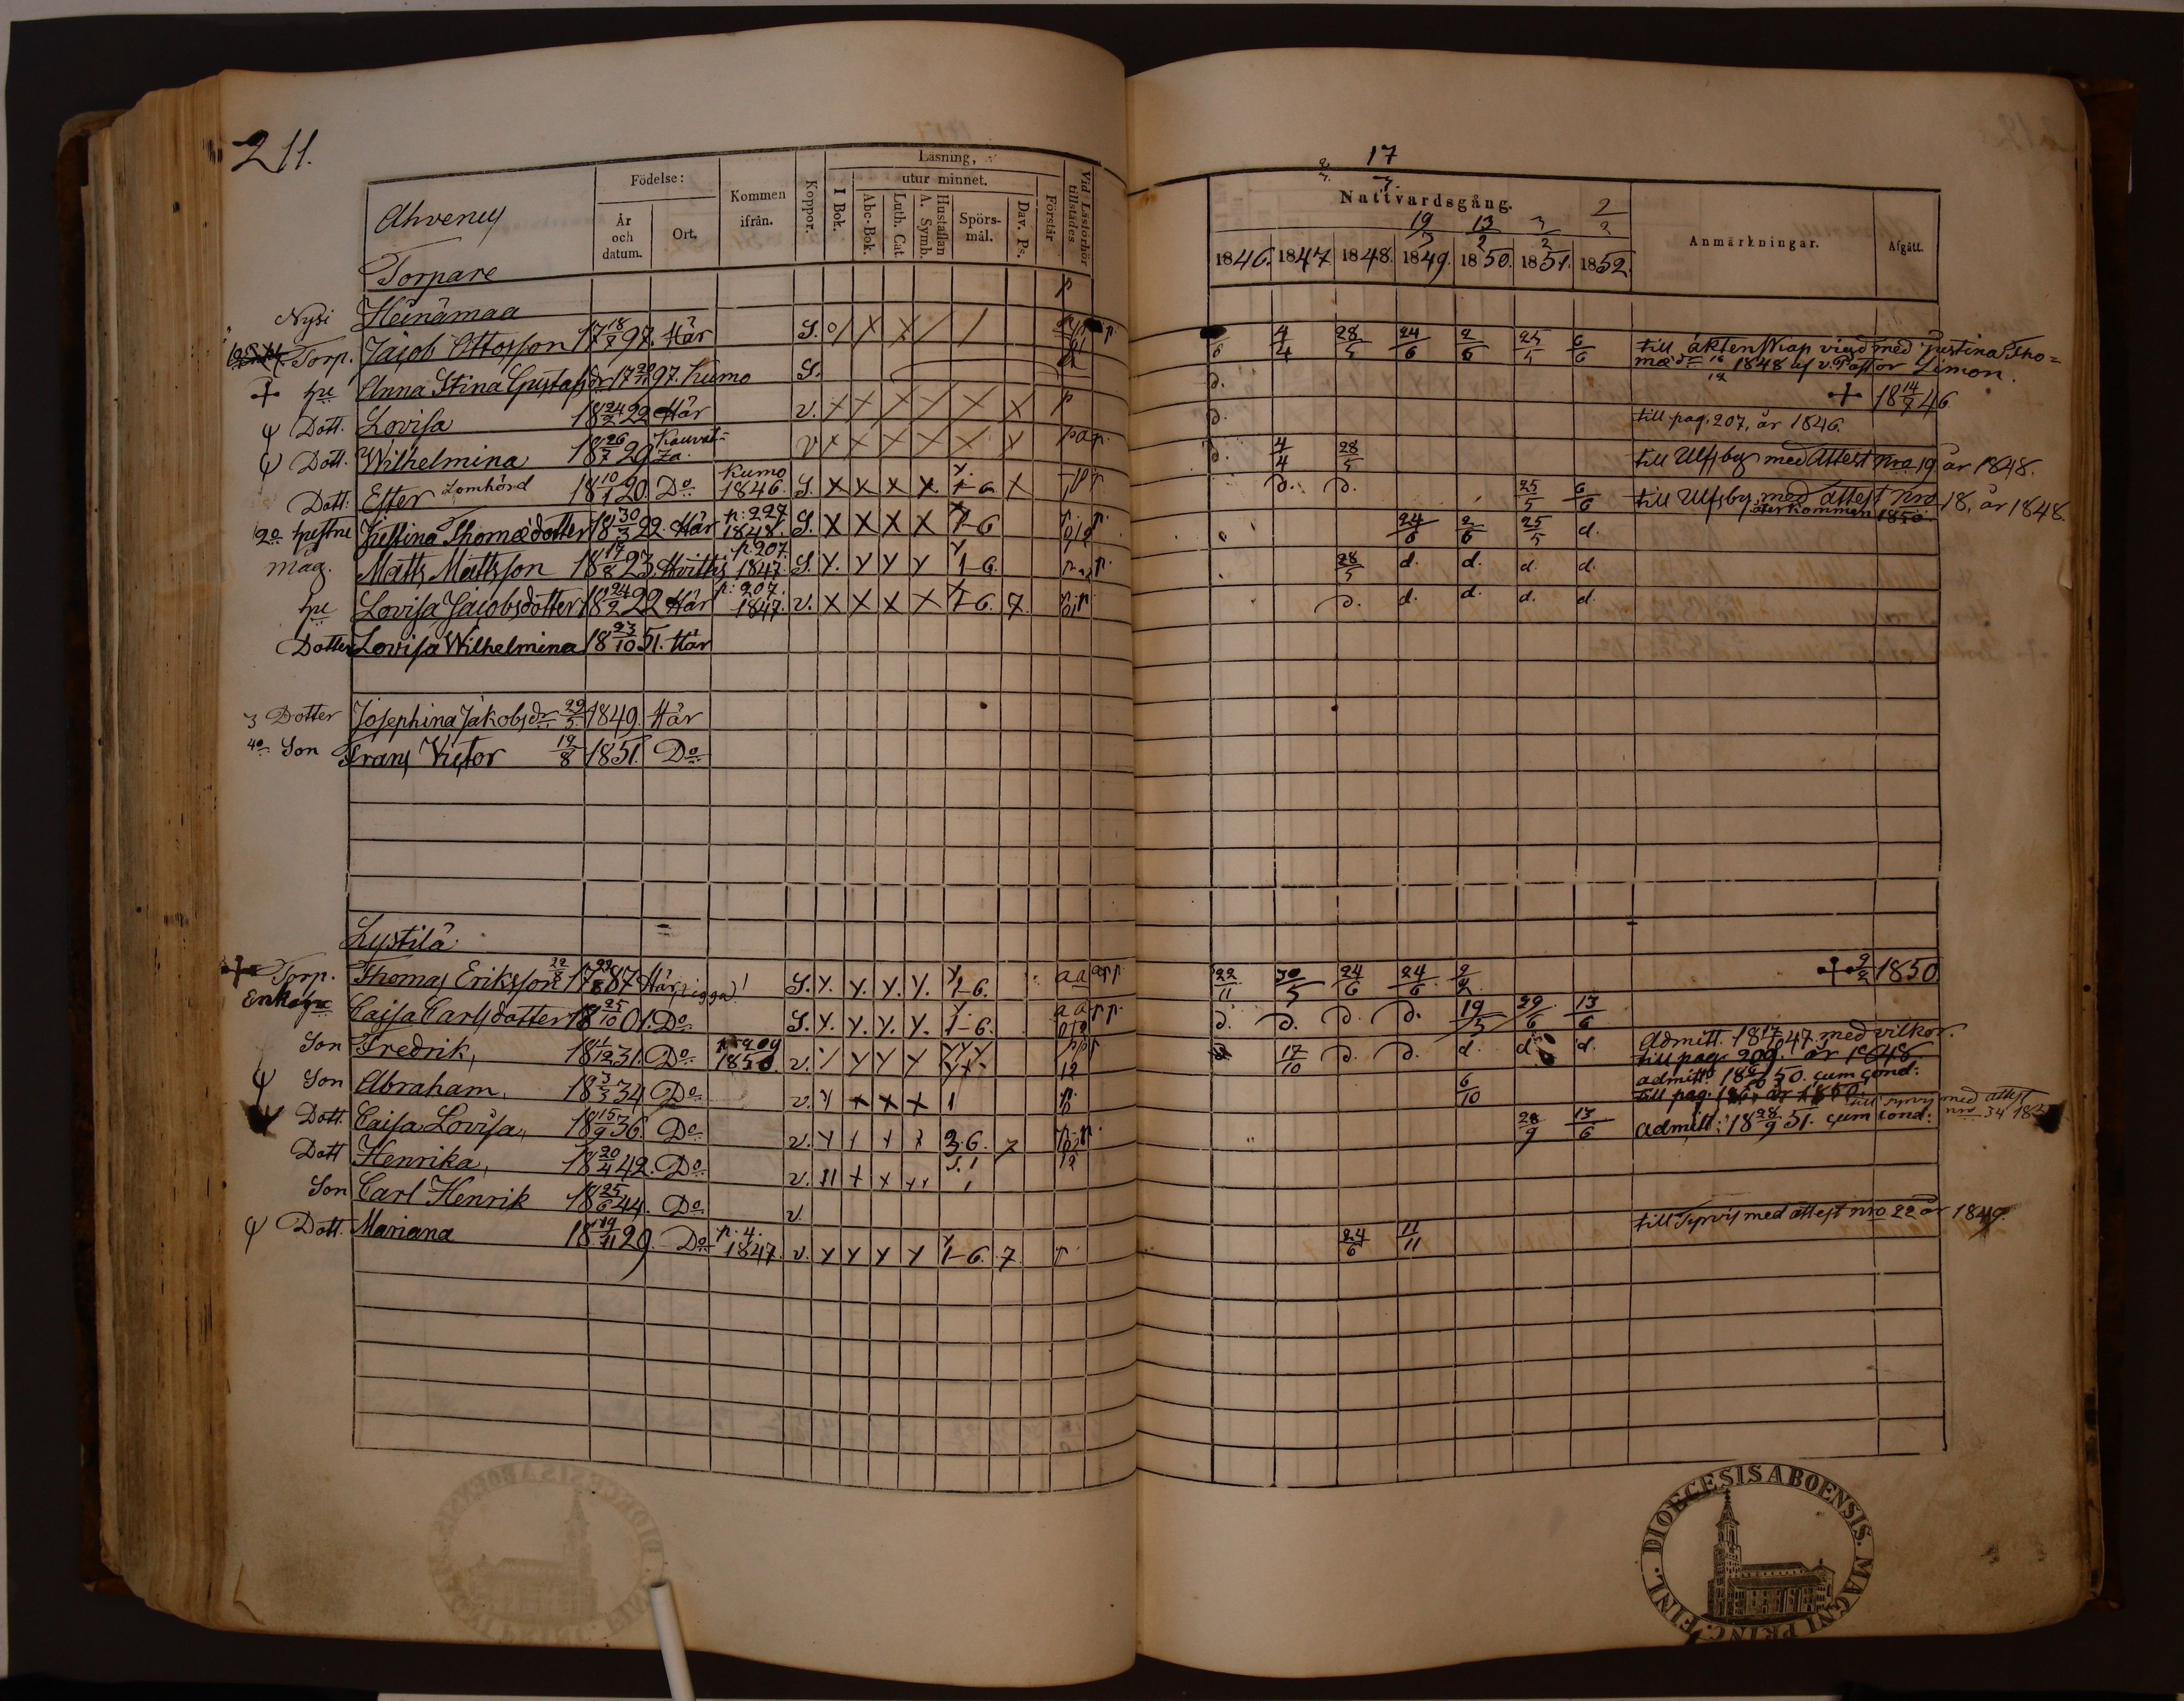 211.
Ahvenus
Torpare
Födelse:
År och datum.
Ort.
Kommen ifrån.
Koppor.
Läsning,
I Bok.
utur minnet.
Abc-Bok.
Luth. Cat.
Hustaflan A. Symb.
Spörsmål.
Dav. Ps.
Förstår
Vid Läsförhör tillstädes
17
Nattvardsgång.
19/3 13/2 3/2 2/2
1846. 1847 1848. 1849. 1850. 1851. 1852.
Anmärkningar.
Afgått.
Nysi Heinämaa
Torp. Jacob Ottosson 17 18/8 97. Här S. 4/4 28/5 24/6 2/6 25/5 6/6 till äktenskap vigd med Justina Tho=
mædr 1848 af v. Pastor Limon.
+ hu Anna Stina Gustafsdr 17 97. Kumo S. d. + 18 14/7 46
ψ Dott. Lovisa 18 24/2 22 Här v. X X X X X X p d. till pag. 207, år 1846.
ψ Dott. Wilhelmina 18 26/7 29 v X X X X X X d. 4/4 28/5 till Ulfsby med Attest nro 19 år 1848.
Dott. Ester Lomhörd 18 10/1 20. Do Kumo 1846. S. X X X X 1-6 X d. d. 25/5 6/6 till Ulfsby med attest nro 18, år 1848.
återkommen 1850.
2o hustru Justina Thomædotter 18 30/3 22. Här p: 227 1848. S. X X X X 1-6 24/6 2/6 25/5 d.
måg. Matts Mattsson 18 17/8 23. Hvittis p. 207. 1847. S. Y. Y Y Y 1-6. 28/5 d. d. d. d.
hu Lovisa Jacobsdotter 18 24/2 22 Här p: 207. 1847. v. X X X X 1-6. 7. d. d. d. d. d.
Dotter Lovisa Wilhelmina 18 23/10 51. Här
3 Dotter Josephina Jakobsdr 29/5. 1849. Här
4o Son Frans Victor 19/8 1851. Do
Lystilä
+ Torp. Thomas Eriksson 22/8 17 87 Här S. Y. Y. Y. Y. 1-6. 22/11 30/5 24/6 24/6 2/2. + 2/2 1850
Enka Caisa Carlsdotter 18 25/10 01. Do S. Y. Y. Y. Y. 1-6. d. d. d. d. 19/5 29/6 13/6
Son Fredrik, 18 31. Do p 209 1850. v. Y Y Y Y 17/10 d. d. d. d. d. Admitt. 18 17/10 47. med vilkor.
till pag. 209. år 1848.
ψ Son Abraham, 18 3/3 34 Do v. Y X X X 1 6/10 admitt. 18 6/10 50. cum cond:
till pag. år 1850.
Dott. Caisa Lovisa, 18 15/9 36. Do v. Y 3-6. 7 28/9 13/6 admitt: 18 28/9 51. cum cond: till Tyrvis med attest nro 34
Dott Henrika, 18 20/4 42. Do v.
Son Carl Henrik 18 25/6 44. Do v.
ψ Dott. Mariana 18 19/11 29. Do p. 4. 1847. v. Y Y Y Y 1-6. 7. p 24/6 11/11 till Tyrvis med attest nro 22 år 1849.
DIOECESIS ABOENSIS. MAGNI PRINC. FINL.